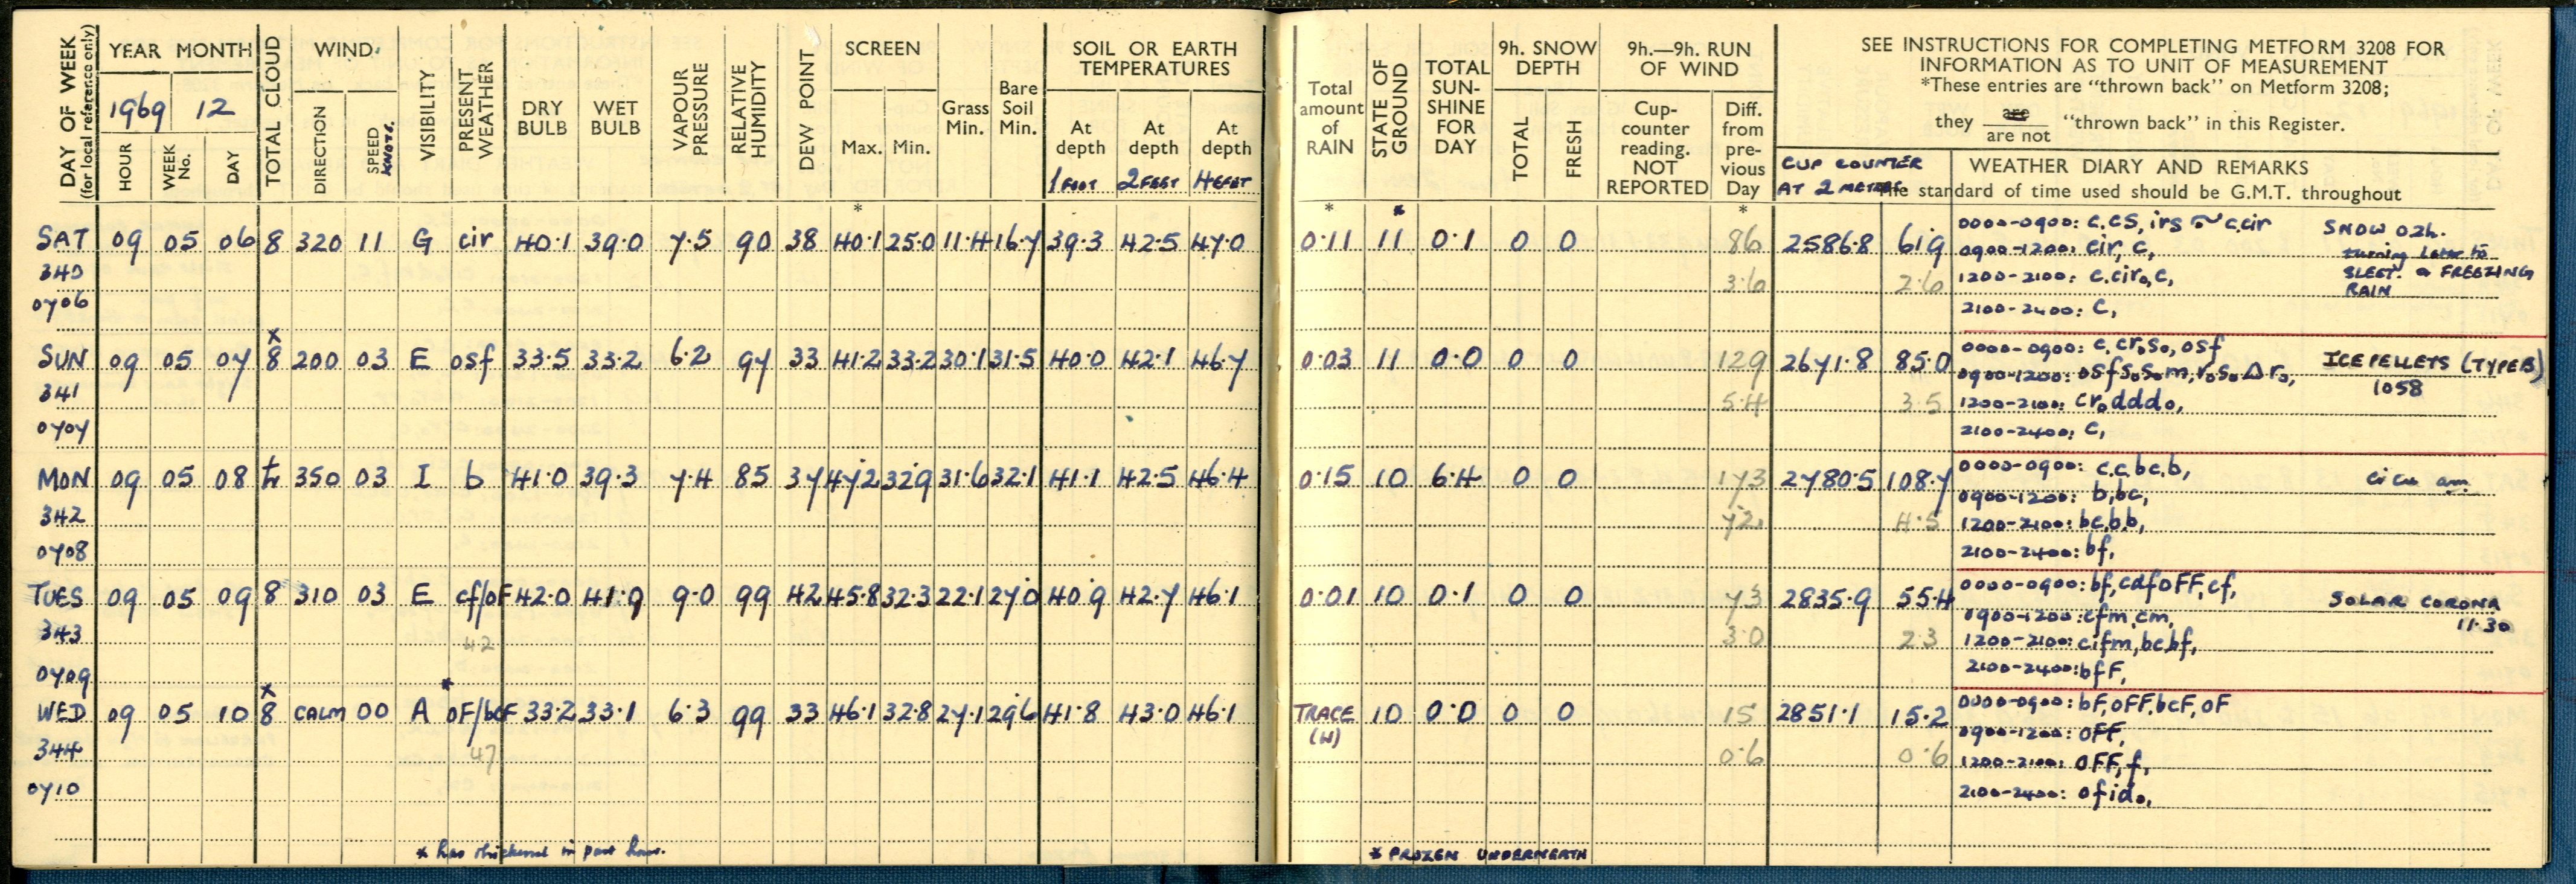 DAY OF WEEK (for local reference only)
YEAR MONTH
1969 12
HOUR WEEK No. DAY
TOTAL CLOUD
WIND
DIRECTION SPEED KNOTS.
VISIBILITY
PRESENT WEATHER
DRY BULB
WET BULB
VAPOUR PRESSURE
RELATIVE HUMIDITY
DEW POINT
SCREEN
Max. Min.
Grass Min.
Bare Soil Min.
SOIL OR EARTH TEMPERATURES
At depth 1 FOOT
At depth 2 FEET
At depth 4 FEET
Total amount of RAIN
STATE OF GROUND
TOTAL SUN-SHINE FOR DAY
9h. SNOW DEPTH
TOTAL FRESH
9h.—9h. RUN OF WIND
Cup-counter reading. NOT REPORTED
Diff. from pre-vious Day
SEE INSTRUCTIONS FOR COMPLETING METFORM 3208 FOR
INFORMATION AS TO UNIT OF MEASUREMENT
*These entries are "thrown back" on Metform 3208;
they are / are not "thrown back" in this Register.
CUP COUNTER AT 2 METRES
WEATHER DIARY AND REMARKS
The standard of time used should be G.M.T. throughout
* * * *
SAT 09 05 06 8 320 11 G cir 40.1 39.0 7.5 90 38 40.1 25.0 11.4 16.7 39.3 42.5 47.0 0.11 11 0.1 0 0 86 2586.8 61.9 0000-0900: c,cs,irs ~ c,cir SNOW 02h.
340 0900-1200: cir, c, turning later to
3.6 2.6 1200-2100: c.ciro,c, SLEET. & FREEZING
0706 RAIN
2100-2400: c,
x
SUN 09 05 07 8 200 03 E osf 33.5 33.2 6.2 97 33 41.2 33.2 30.1 31.5 40.0 42.1 46.7 0.03 11 0.0 0 0 129 2671.8 85.0 0000-0900: c,croso,osf ICE PELLETS (TYPE B)
341 0900-1200: osfsosom,rosoΔro, 1058
5.4 3.5 1200-2100: crodddo,
0707 2100-2400: c,
MON 09 05 08 350 03 I b 41.0 39.3 7.4 85 37 47.2 32.9 31.6 32.1 41.1 42.5 46.4 0.15 10 6.4 0 0 173 2780.5 108.7 0000-0900: c,c,bc,b, ci cu am
342 0900-1200: b,bc,
7.2 4.5 1200-2100: bc,b,b,
0708 2100-2400: bf,
TUES 09 05 09 8 310 03 E cf/oF 42.0 41.9 9.0 99 42 45.8 32.3 22.1 27.0 40.9 42.7 46.1 0.01 10 0.1 0 0 73 2835.9 55.4 0000-0900: bf,cdfoFF,cf, SOLAR CORONA
343 0900-1200: cfm,cm, 11.30
42 3.0 2.3 1200-2100: cifm,bc,bf,
0709 2100-2400: bfF,
x *
WED 09 05 10 8 CALM 00 A oF/bcF 33.2 33.1 6.3 99 33 46.1 32.8 27.1 29.6 41.8 43.0 46.1 TRACE (W) 10 0.0 0 0 15 2851.1 15.2 0000-0900: bF,oFF,bcF,oF
344 0900-1200: oFF,
47 0.6 0.6 1200-2100: oFF,f,
0710 2100-2400: ofido,
* has thickened in past hour.
* FROZEN UNDERNEATH